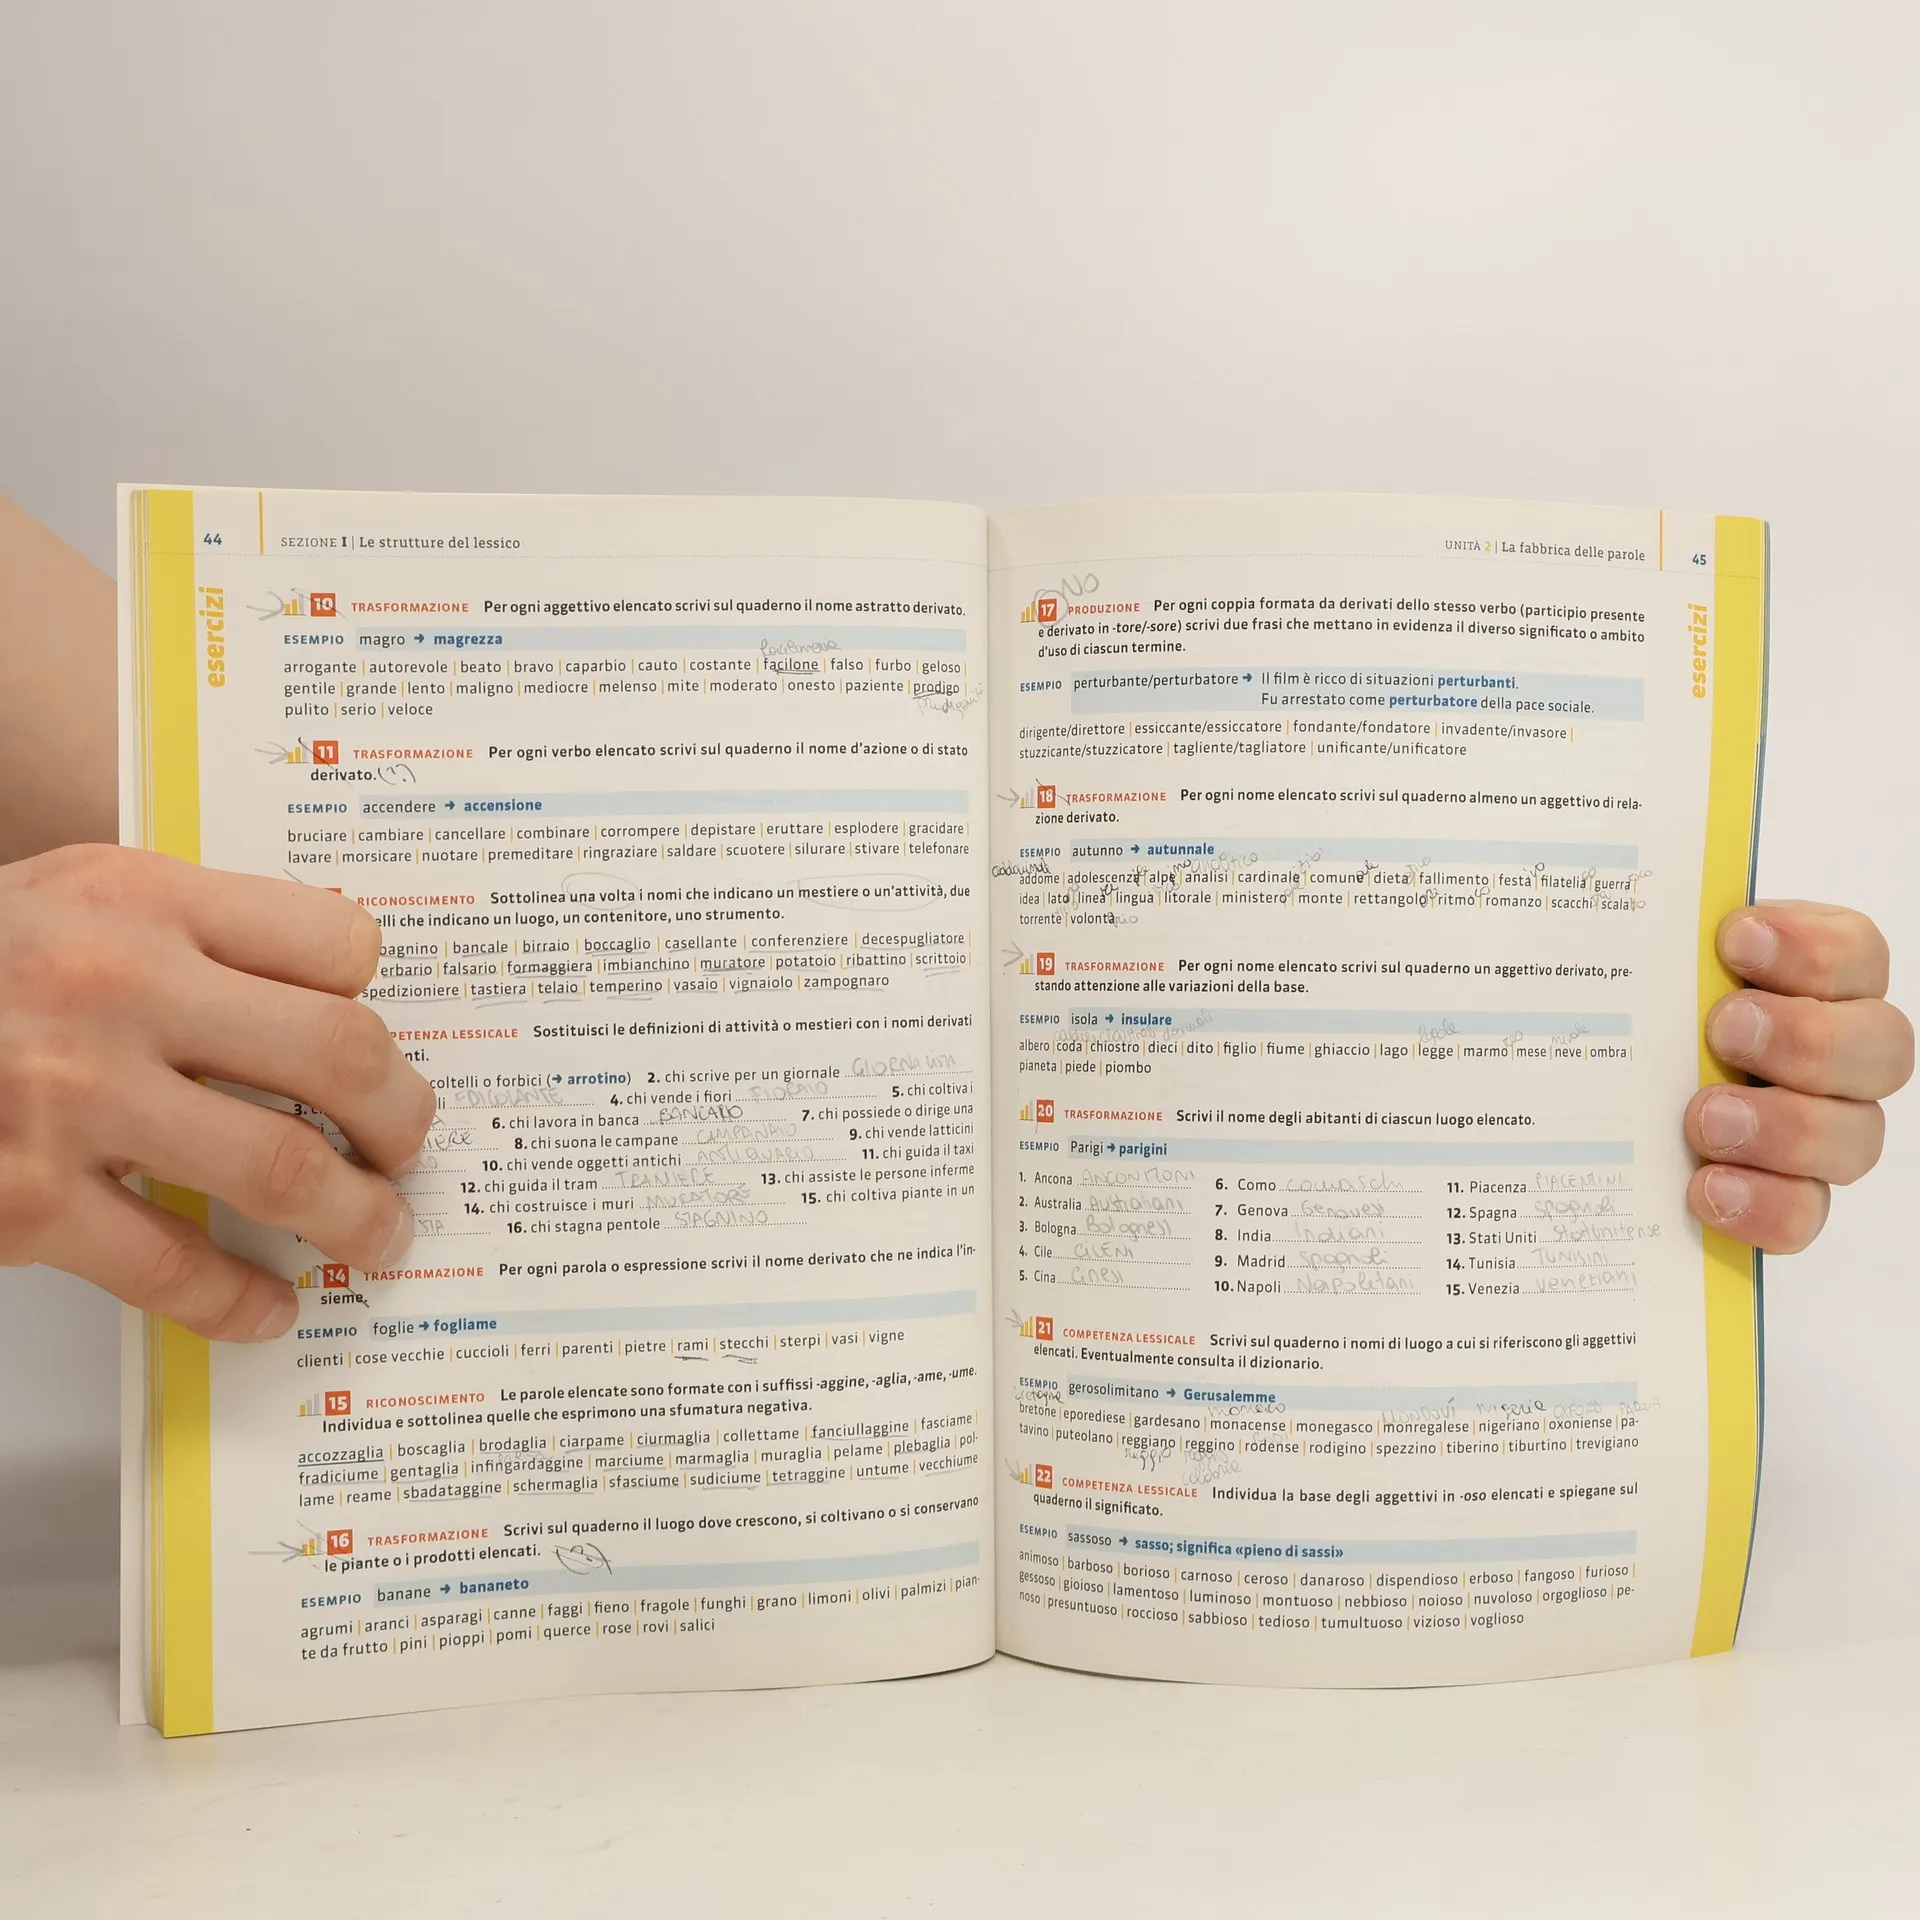 44
SEZIONE I | Le strutture del lessico
esercizi
10 TRASFORMAZIONE Per ogni aggettivo elencato scrivi sul quaderno il nome astratto derivato.
ESEMPIO magro → magrezza
arrogante | autorevole | beato | bravo | caparbio | cauto | costante | facilone | falso | furbo | geloso |
gentile | grande | lento | maligno | mediocre | melenso | mite | moderato | onesto | paziente | prodigo
pulito | serio | veloce
11 TRASFORMAZIONE Per ogni verbo elencato scrivi sul quaderno il nome d'azione o di stato
derivato. (?)
ESEMPIO accendere → accensione
bruciare | cambiare | cancellare | combinare | corrompere | depistare | eruttare | esplodere | gracidare |
lavare | morsicare | nuotare | premeditare | ringraziare | saldare | scuotere | silurare | stivare | telefonare
RICONOSCIMENTO Sottolinea una volta i nomi che indicano un mestiere o un'attività, due
elli che indicano un luogo, un contenitore, uno strumento.
bagnino | bancale | birraio | boccaglio | casellante | conferenziere | decespugliatore |
erbario | falsario | formaggiera | imbianchino | muratore | potatoio | ribattino | scrittoio |
spedizioniere | tastiera | telaio | temperino | vasaio | vignaiolo | zampognaro
PETENZA LESSICALE Sostituisci le definizioni di attività o mestieri con i nomi derivati
nti.
coltelli o forbici (→ arrotino) 2. chi scrive per un giornale GIORNALISTA
3. li EDICOLANTE 4. chi vende i fiori FIORAIO 5. chi coltiva i
6. chi lavora in banca BANCARIO 7. chi possiede o dirige una
IERE 8. chi suona le campane CAMPANAIO 9. chi vende latticini
10. chi vende oggetti antichi ANTIQUARIO 11. chi guida il taxi
12. chi guida il tram TRANIERE 13. chi assiste le persone inferme
14. chi costruisce i muri MURATORE 15. chi coltiva piante in un
16. chi stagna pentole STAGNINO
14 TRASFORMAZIONE Per ogni parola o espressione scrivi il nome derivato che ne indica l'in-
sieme.
ESEMPIO foglie → fogliame
clienti | cose vecchie | cuccioli | ferri | parenti | pietre | rami | stecchi | sterpi | vasi | vigne
15 RICONOSCIMENTO Le parole elencate sono formate con i suffissi -aggine, -aglia, -ame, -ume.
Individua e sottolinea quelle che esprimono una sfumatura negativa.
accozzaglia | boscaglia | brodaglia | ciarpame | ciurmaglia | collettame | fanciullaggine | fasciame |
fradiciume | gentaglia | infingardaggine | marciume | marmaglia | muraglia | pelame | plebaglia | pol-
lame | reame | sbadataggine | schermaglia | sfasciume | sudiciume | tetraggine | untume | vecchiume
16 TRASFORMAZIONE Scrivi sul quaderno il luogo dove crescono, si coltivano o si conservano
le piante o i prodotti elencati. (?)
ESEMPIO banane → bananeto
agrumi | aranci | asparagi | canne | faggi | fieno | fragole | funghi | grano | limoni | olivi | palmizi | pian-
te da frutto | pini | pioppi | pomi | querce | rose | rovi | salici
UNITÀ 2 | La fabbrica delle parole
45
esercizi
NO
17 PRODUZIONE Per ogni coppia formata da derivati dello stesso verbo (participio presente
e derivato in -tore/-sore) scrivi due frasi che mettano in evidenza il diverso significato o ambito
d'uso di ciascun termine.
ESEMPIO perturbante/perturbatore → Il film è ricco di situazioni perturbanti.
Fu arrestato come perturbatore della pace sociale.
dirigente/direttore | essiccante/essiccatore | fondante/fondatore | invadente/invasore |
stuzzicante/stuzzicatore | tagliente/tagliatore | unificante/unificatore
18 TRASFORMAZIONE Per ogni nome elencato scrivi sul quaderno almeno un aggettivo di rela-
zione derivato.
ESEMPIO autunno → autunnale
analitico
addome | adolescenza | alpe | analisi | cardinale | comune | dieta | fallimento | festa | filatelia | guerra |
idea | lato | linea | lingua | litorale | ministero | monte | rettangolo | ritmo | romanzo | scacchi | scala |
torrente | volontà
19 TRASFORMAZIONE Per ogni nome elencato scrivi sul quaderno un aggettivo derivato, pre-
stando attenzione alle variazioni della base.
ESEMPIO isola → insulare
albero | coda | chiostro | dieci | dito | figlio | fiume | ghiaccio | lago | legge | marmo | mese | neve | ombra |
pianeta | piede | piombo
20 TRASFORMAZIONE Scrivi il nome degli abitanti di ciascun luogo elencato.
ESEMPIO Parigi → parigini
1. Ancona ANCONITONI
2. Australia Australiani
3. Bologna Bolognesi
4. Cile CILENI
5. Cina Cinesi
6. Como comaschi
7. Genova Genovesi
8. India Indiani
9. Madrid spagnoli
10. Napoli Napoletani
11. Piacenza PIACENTINI
12. Spagna spagnoli
13. Stati Uniti Statunitense
14. Tunisia TUNISINI
15. Venezia veneziani
21 COMPETENZA LESSICALE Scrivi sul quaderno i nomi di luogo a cui si riferiscono gli aggettivi
elencati. Eventualmente consulta il dizionario.
ESEMPIO gerosolimitano → Gerusalemme
monaco MONDOVÍ nigeria
bretone | eporediese | gardesano | monacense | monegasco | monregalese | nigeriano | oxoniense | pa-
tavino | puteolano | reggiano | reggino | rodense | rodigino | spezzino | tiberino | tiburtino | trevigiano
reggio
calabria
22 COMPETENZA LESSICALE Individua la base degli aggettivi in -oso elencati e spiegane sul
quaderno il significato.
ESEMPIO sassoso → sasso; significa «pieno di sassi»
animoso | barboso | borioso | carnoso | ceroso | danaroso | dispendioso | erboso | fangoso | furioso |
gessoso | gioioso | lamentoso | luminoso | montuoso | nebbioso | noioso | nuvoloso | orgoglioso | pe-
noso | presuntuoso | roccioso | sabbioso | tedioso | tumultuoso | vizioso | voglioso